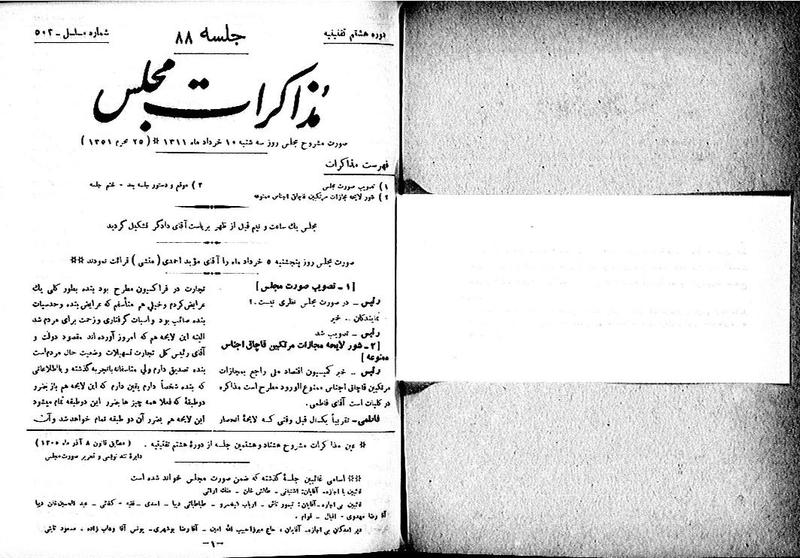 دوره هشتم تقنینیه
جلسه ۸۸
شماره مسلسل - ۵۰۲
مذاکرات مجلس
صورت مشروح مجلس روز سه شنبه ۱۰ خرداد ماه ۱۳۱۱ * ( ۲۵ محرم ۱۳۵۱ )
فهرست مذاکرات
۱) تصویب صورت مجلس
۲) شور لایحه مجازات مرتکبین قاچاق اجناس ممنوعه
۳) موقع و دستور جلسه بعد - ختم جلسه
مجلس یك ساعت و نیم قبل از ظهر بریاست آقای دادگر تشکیل گردید
صورت مجلس روز پنجشنبه ۵ خرداد ماه را آقای مؤید احمدی (منشی) قرائت نمودند **
[۱ - تصویب صورت مجلس]
رئیس - در صورت مجلس نظری نیست؟
نمایندگان - خیر
رئیس - تصویب شد
[۲ - شور لایحه مجازات مرتکبین قاچاق اجناس
ممنوعه]
رئیس - خبر کمیسیون اقتصاد ملی راجع بمجازات
مرتکبین قاچاق اجناس ممنوع الورود مطرح است مذاکره
در کلیات است آقای فاطمی.
فاطمی - تقریباً یکسال قبل وقتی که لایحهٔ انحصار
تجارت در فراکسیون مطرح بود بنده بطور کلی یك
عرایضی کردم و خیلی هم متأسفم که عرایض بنده وحدسیات
بنده صائب بود و اسباب گرفتاری و زحمت برای مردم شد
البته این لایحه هم که امروز آورده اند مقصود دولت و
آقای رئیس کل تجارت تسهیلات وضعیت حال مردم است
بنده تصدیق دارم ولی متاسفانه باتجربه گذشته و بااطلاعاتی
که بنده شخصاً دارم یقین دارم که این لایحه هم باز بضرر
دوطبقهٔ که فعلا همه چیز ها بضرر این دوطبقه تمام میشود
این لایحه هم بضرر آن دو طبقه تمام خواهد شد و آن
* عین مذاکرات مشروح هشتاد و هشتمین جلسه از دورهٔ هشتم تقنینیه . (مطابق قانون ۸ آذر ماه ۱۳۰۵)
دایرهٔ تند نویسی و تحریر صورت مجلس
** اسامی غائبین جلسهٔ گذشته که ضمن صورت مجلس خوانده شده است
غائبین با اجازه - آقایان: آشتیانی - طالش خان - ملک آرائی
غائبین بی اجازه - آقایان: تیمور تاش - ارباب کیخسرو - طباطبائی دیبا - اسدی - فقیه - کفائی - عبد الحسین خان دیبا
آقا رضا مهدوی - اقبال - قوام .
دیر آمدگان بی اجازه - آقایان ، حاج میرزا حبیب الله امین - آقا رضا بوشهری - یونس آقا وهاب زاده . مسعود ثابتی
-۱-